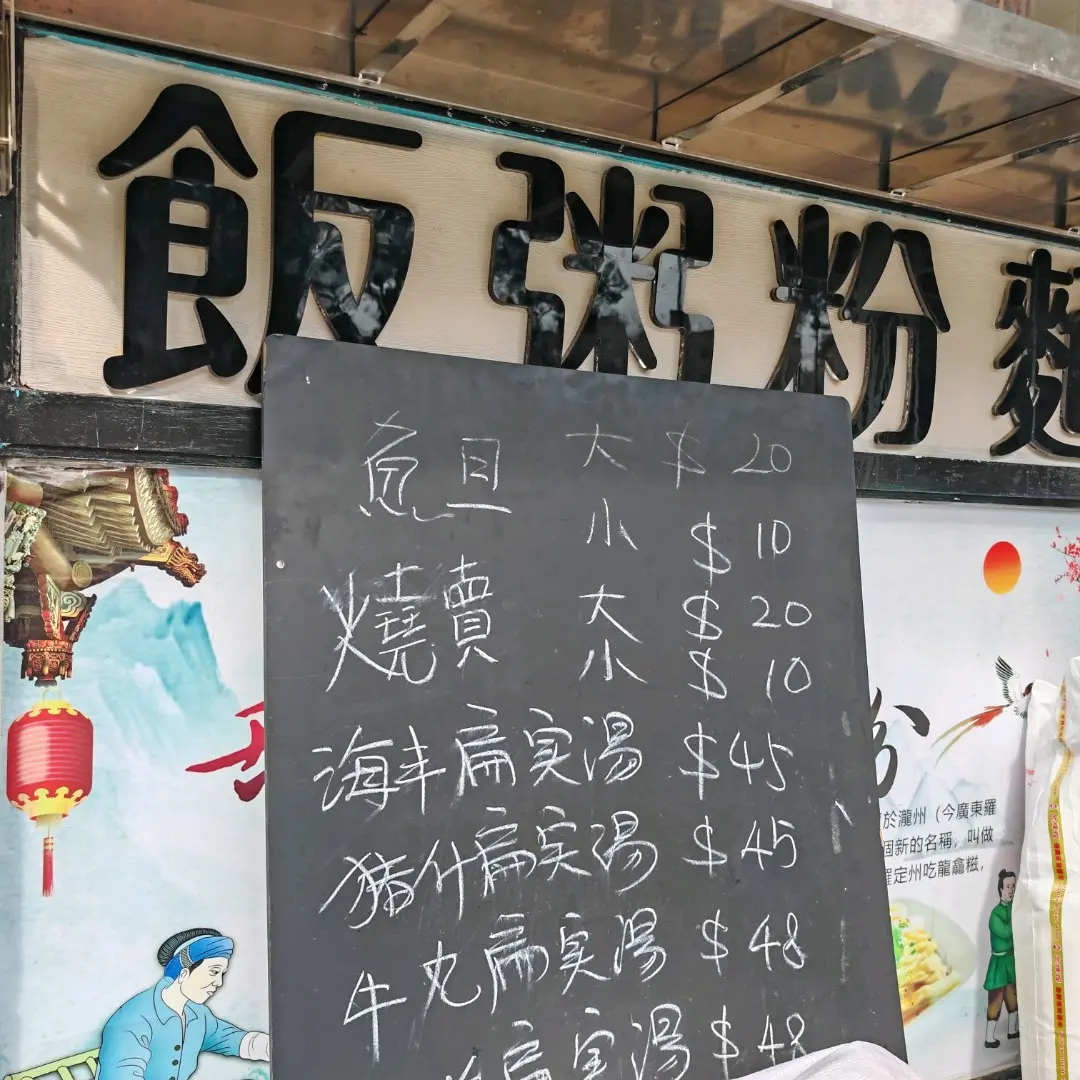 飯粥粉麵
魚旦 大 $20
小 $10
燒賣 大 $20
小 $10
海丰扁实湯 $45
猪什扁实湯 $45
牛丸扁实湯 $48
扁实湯 $48
於瀧州（今廣東羅
個新的名稱，叫做
羅定州吃龍龕糍，